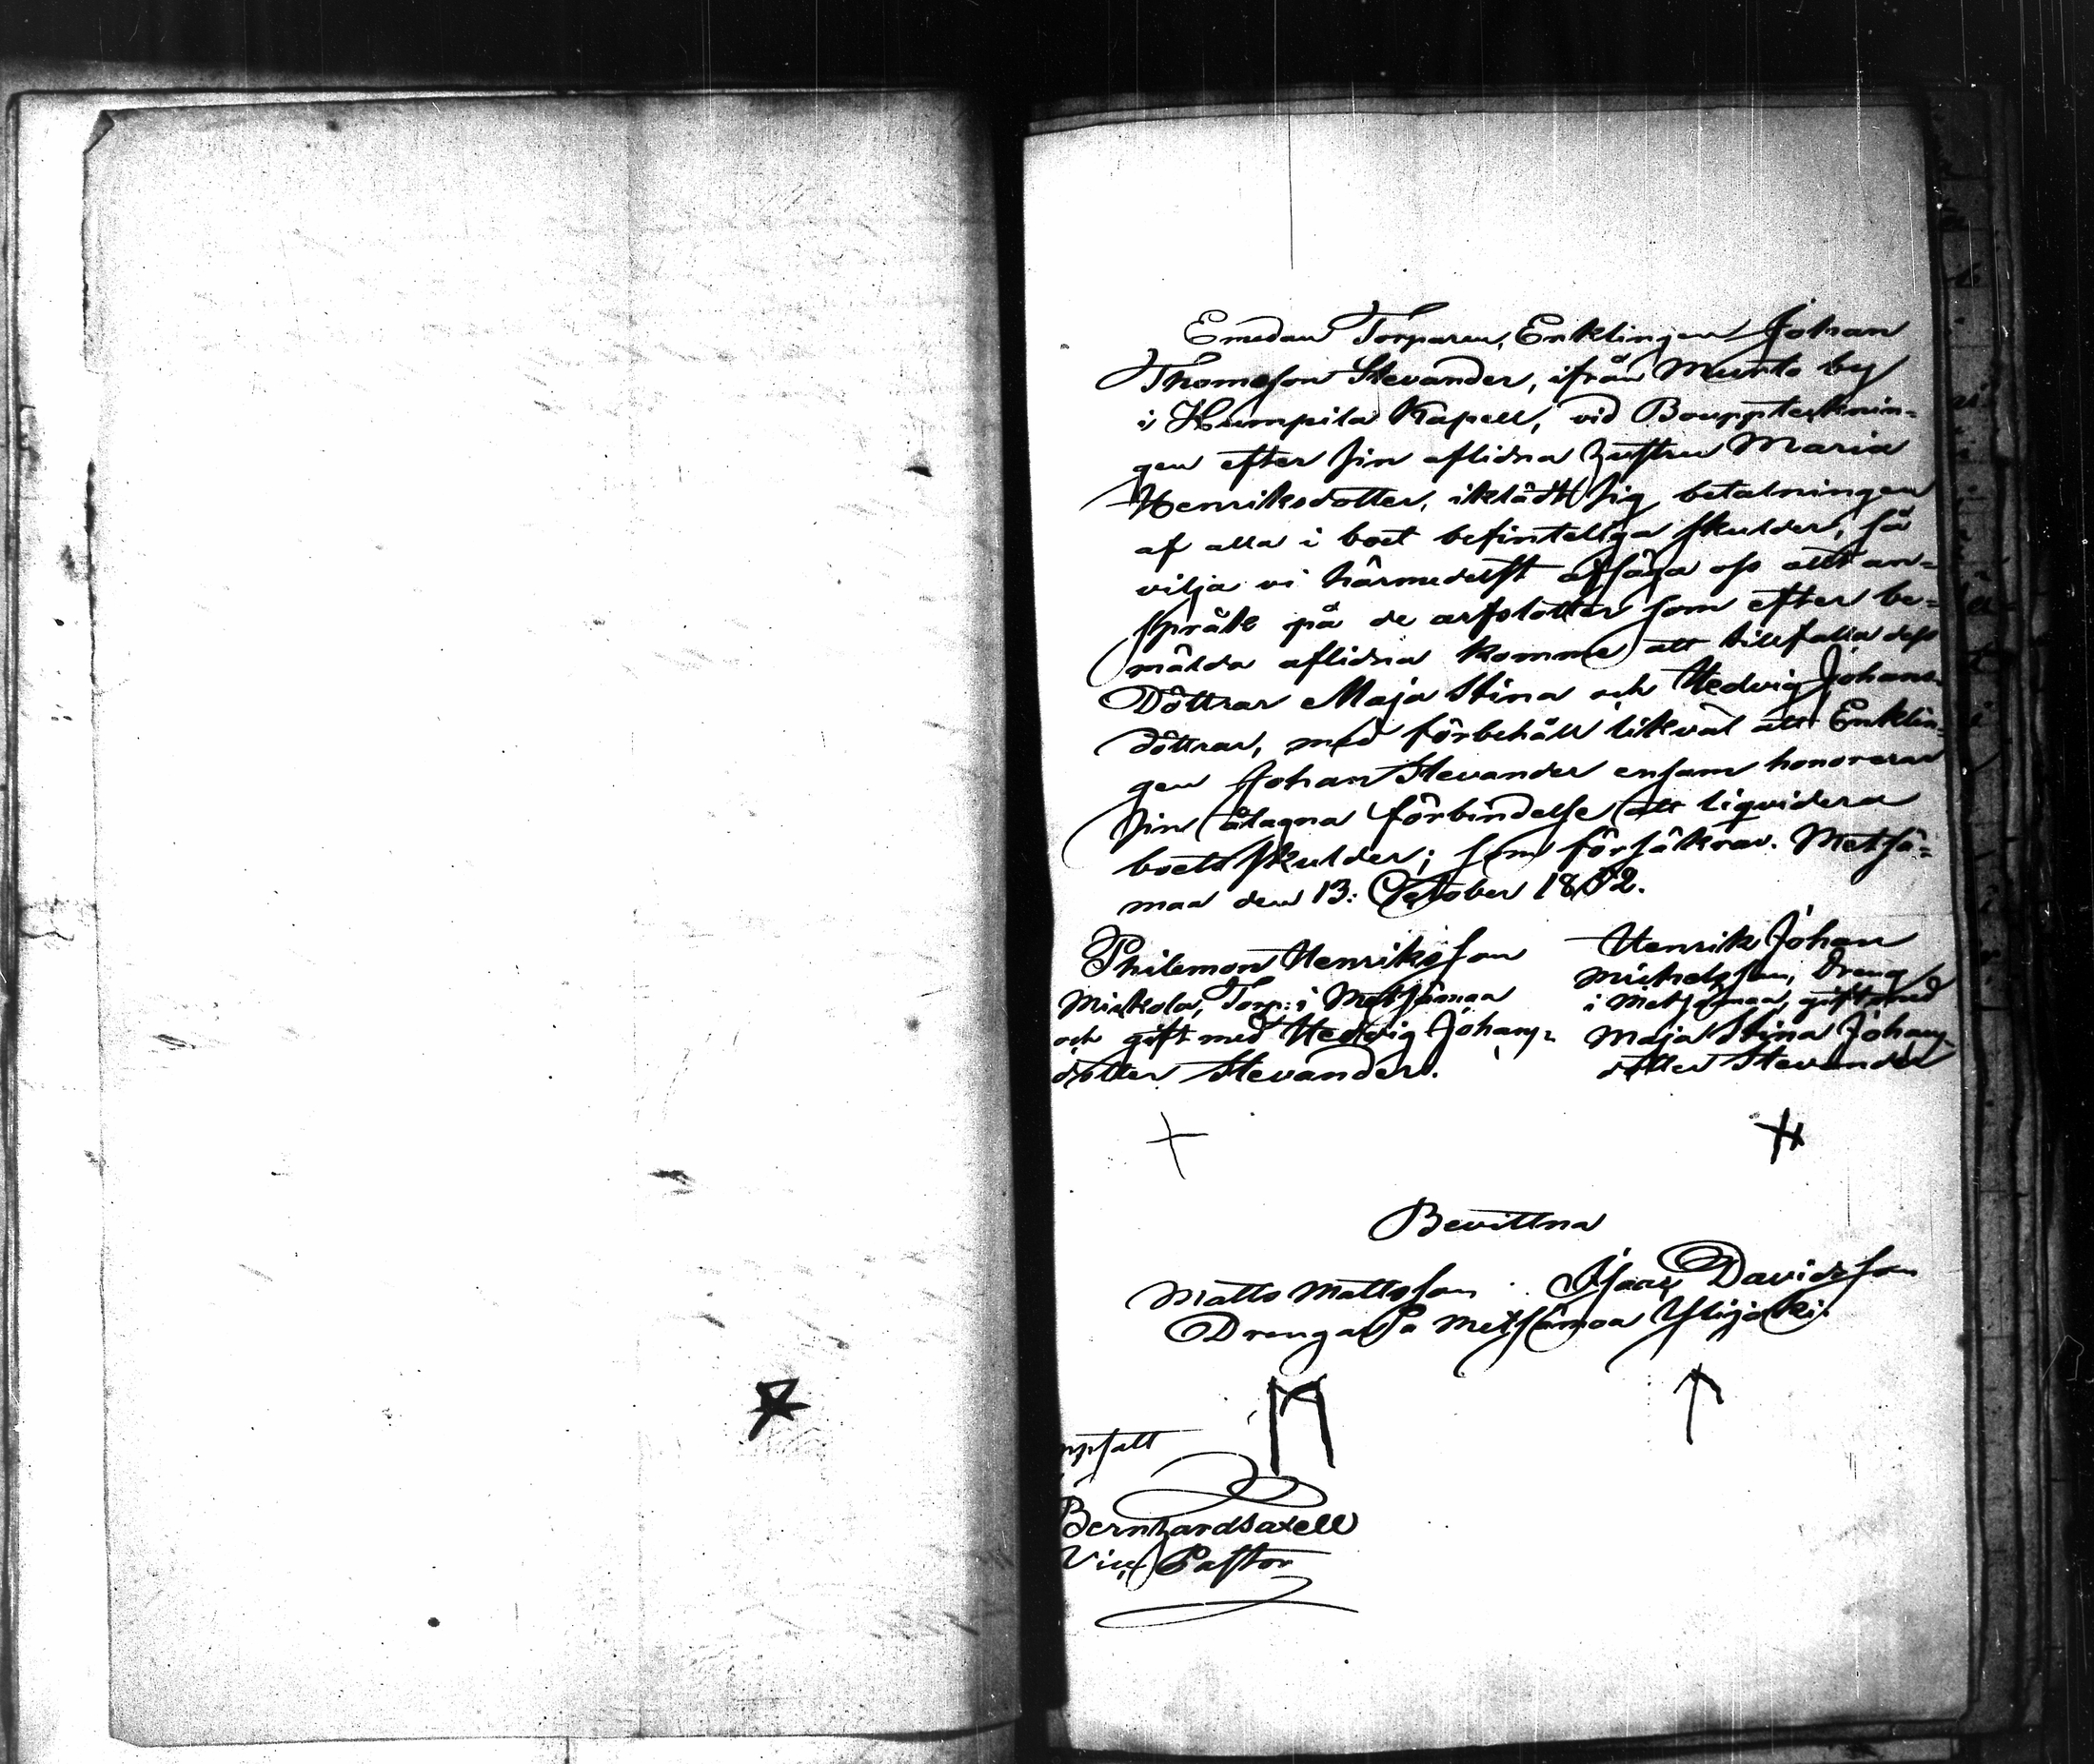 Emedan Torparen, Enklingen Johan
Thomasson Stevander, ifrån Murto by
i Humpila Kapell, vid Bouppteknin-
gen efter sin aflidna hustru Maria
Henriksdotter, iklädt sig betalningen
af alla i boet befinteliga skulder, så
vilja vi härmedelst afsäga oss allt an-
språk på de arfslotter som efter be-
mälda aflidna komme att tillfalla dess
Döttrar Maja Stina och Hedvig Johans-
döttrar, med förbehåll likväl att Enklin-
gen Johan Stevander ensam honorerar
sin åtagna förbindelse att liquidera
boets skulder; som försäkras. Metsä-
maa den 13: October 18 2.
Philemon Henriksson
Mickola, Torp: i Metsämaa
och gift med Hedvig Johans-
dotter Stevander.
Henrik Johan
Michelsson, Dreng
i Metsämaa, gift med
Maja Stina Johans-
dotter Stevander
Bevittna
Matts Mattsson Isaac Davidsson
Drengar på Metsämaa Ylijoki.
ppsatt
Bernhard Saxell
Vice Pastor